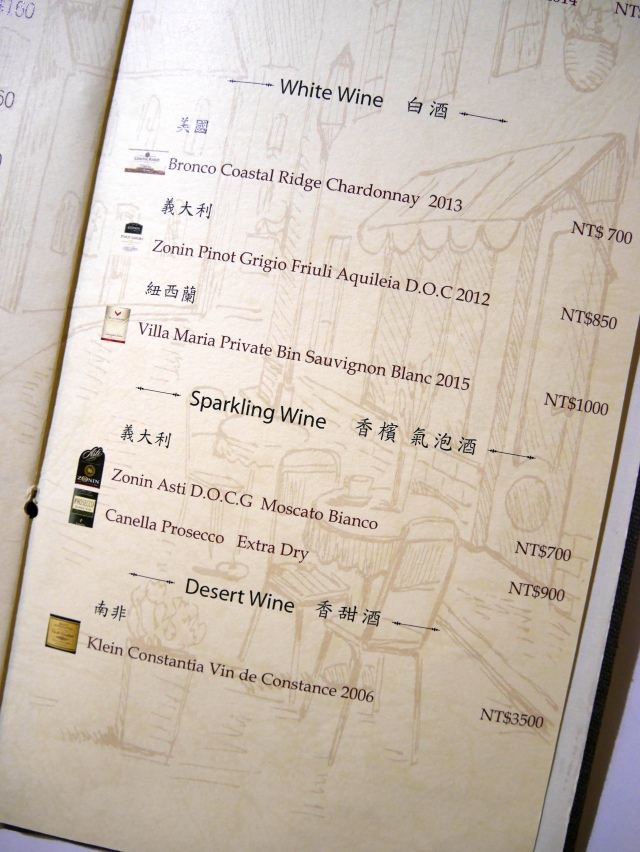 White Wine 白酒
美國
Bronco Coastal Ridge Chardonnay 2013
NT$ 700
義大利
Zonin Pinot Grigio Friuli Aquileia D.O.C 2012
NT$850
紐西蘭
Villa Maria Private Bin Sauvignon Blanc 2015
NT$1000
Sparkling Wine 香檳 氣泡酒
義大利
Zonin Asti D.O.C.G Moscato Bianco
NT$700
Canella Prosecco Extra Dry
NT$900
Desert Wine 香甜酒
南非
Klein Constantia Vin de Constance 2006
NT$3500